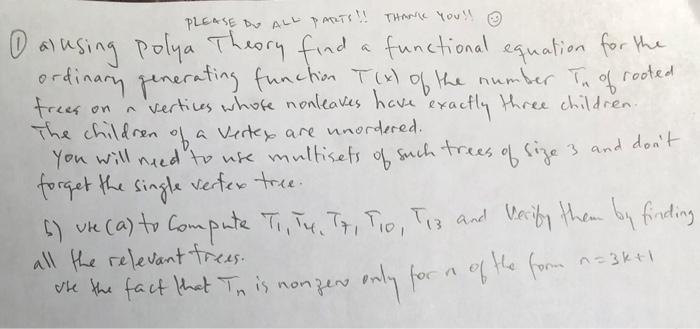 PLEASE DO ALL PARTS!! THANK YOU!! ☺
① a) using Polya Theory find a functional equation for the
ordinary generating function T(x) of the number Tn of rooted
trees on n vertices whose nonleaves have exactly three children.
The children of a vertex are unordered.
You will need to use multisets of such trees of size 3 and don't
forget the single vertex tree.
b) use (a) to compute T₁, T₄, T₇, T₁₀, T₁₃ and verify them by finding
all the relevant trees.
use the fact that Tn is nonzero only for n of the form n=3k+1